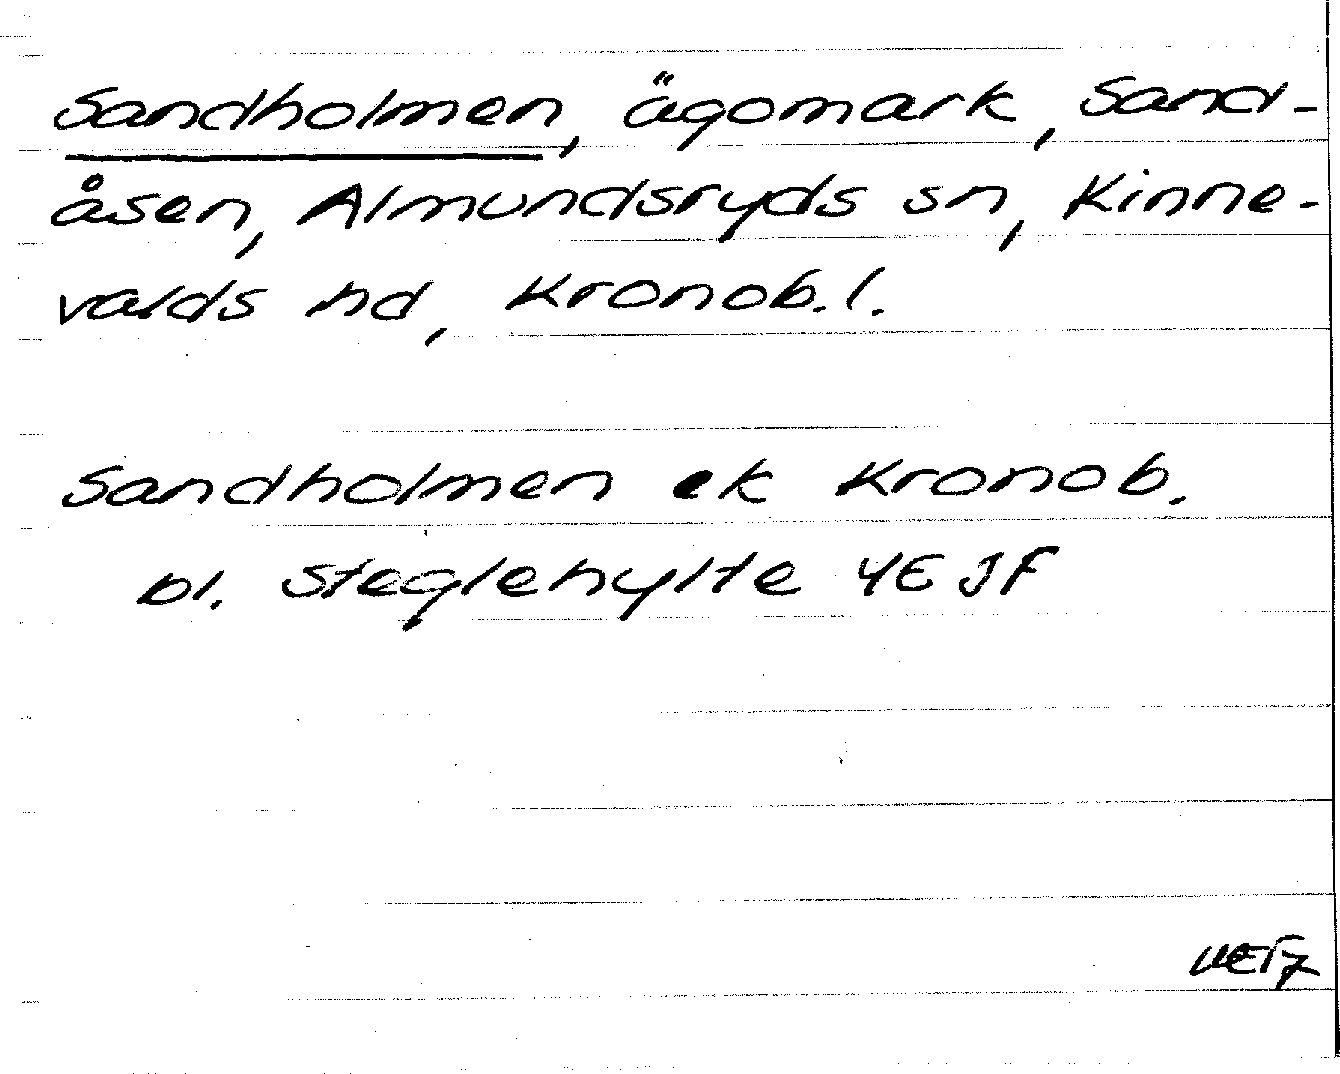 Sandholmen, ägomark, Sand-
åsen, Almundsryds sn, Kinne-
valds hd, Kronob. l.
Sandholmen ek Kronob.
bl. Steglehylte 4E JF